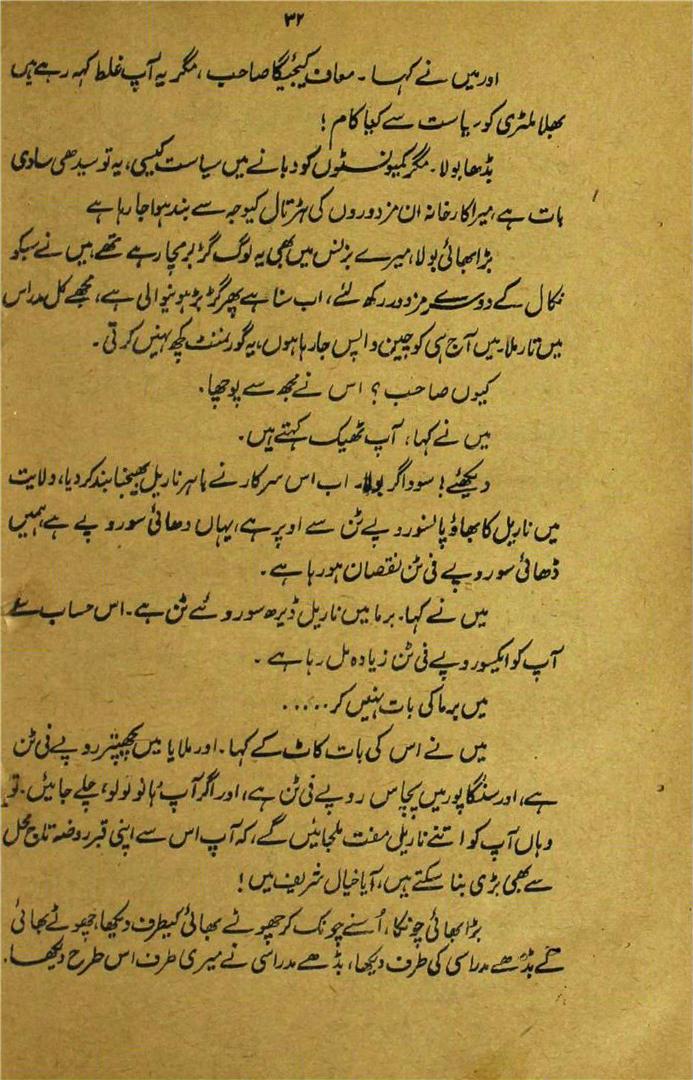 ۳۲
اور میں نے کہا ۔ معاف کیجئیگا صاحب ، مگر یہ آپ غلط کہہ رہے ہیں
بھلا ملٹری کو ریاست سے کیا کام !
بڈھا بولا ۔ مگر کمیونسٹوں کو دبانے میں سیاست کیسی ، یہ تو سیدھی سادی
بات ہے ، میرا کارخانہ ان مزدوروں کی ہڑتال کیوجہ سے بند ہوا جا رہا ہے
بڑا بھائی بولا ، میرے بزنس میں بھی یہ لوگ گڑبڑ مچا رہے تھے میں نے سبکو
نکال کے دوسرے مزدور رکھ لئے ، اب سنا ہے پھر گڑبڑ ہونیوالی ہے ، مجھے کل مدراس
میں تار ملا ۔ میں آج ہی کوچین واپس جا رہا ہوں ، یہ گورنمنٹ کچھ نہیں کرتی ۔
کیوں صاحب ؟ اس نے مجھ سے پوچھا ۔
میں نے کہا ، آپ ٹھیک کہتے ہیں ۔
دیکھئے ! سوداگر بولا ۔ اب اس سرکار نے باہر ناریل بھیجنا بند کر دیا ، ولایت
میں ناریل کا بھاؤ پانسو روپے ٹن سے اوپر ہے ، یہاں ڈھائی سو روپے ہے ، ہمیں
ڈھائی سو روپے فی ٹن نقصان ہو رہا ہے ۔
میں نے کہا ۔ برما میں ناریل ڈیڑھ سو روپے ٹن ہے ۔ اس حساب سے
آپ کو ایکسو روپے فی ٹن زیادہ مل رہا ہے ۔
میں برما کی بات نہیں کر ۔۔۔۔۔
میں نے اس کی بات کاٹ کے کہا ۔ اور ملایا میں پچھتر روپے فی ٹن
ہے ، اور سنگاپور میں پچاس روپے فی ٹن ہے ، اور اگر آپ ہانولولو ، چلے جائیں ۔ تو
وہاں آپ کو اتنے ناریل مفت ملجائیں گے ، کہ آپ اس سے اپنی قبر روضہ تاج محل
سے بھی بڑی بنا سکتے ہیں ، آیا خیال شریف میں !
بڑا بھائی چونکا ، اُسنے چونک کر چھوٹے بھائی کیطرف دیکھا ، چھوٹے بھائی
نے بڈھے مدراسی کی طرف دیکھا ، بڈھے مدراسی نے میری طرف اس طرح دیکھا ۔